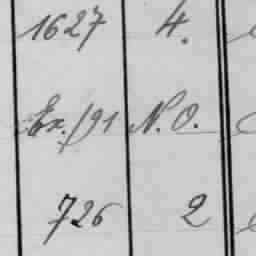 1627 4.
Ex. f91 N. O.
726 2